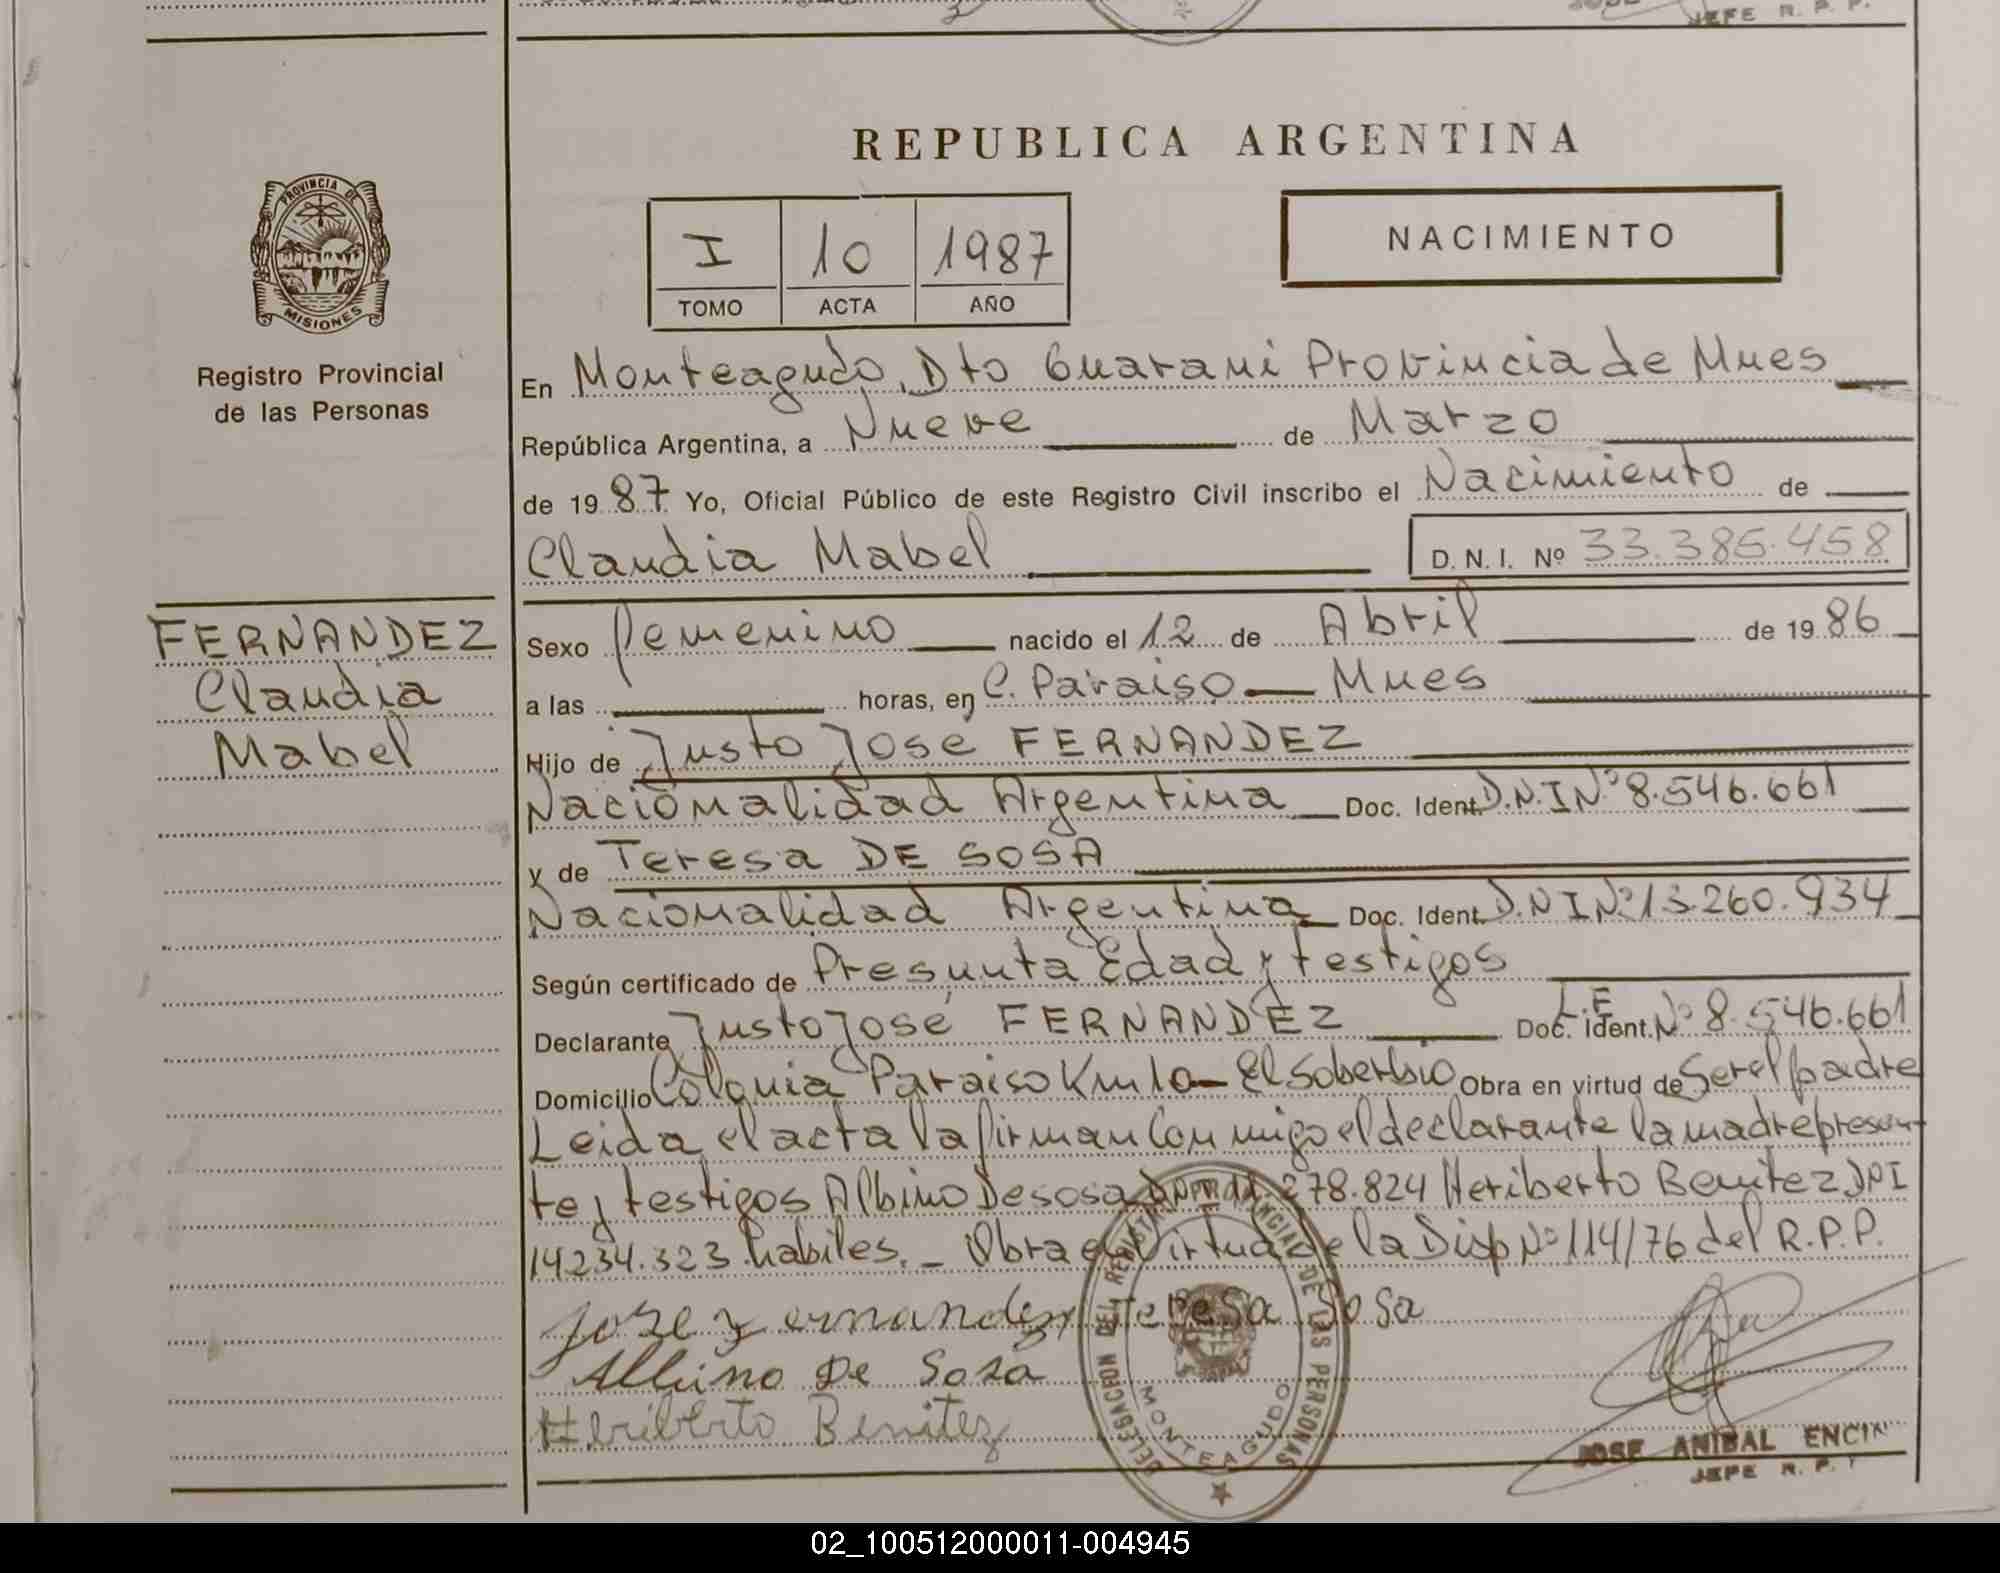 JEFE R. P. P.
REPUBLICA ARGENTINA
PROVINCIA DE
MISIONES
Registro Provincial
de las Personas
I 10 1987
TOMO ACTA AÑO
NACIMIENTO
En Monteagudo, Dto Guarani Provincia de Mnes
República Argentina, a Nueve de Marzo
de 1987 Yo, Oficial Público de este Registro Civil inscribo el Nacimiento de
Claudia Mabel D. N. I. Nº 33.385.458
FERNANDEZ
Claudia
Mabel
Sexo femenino nacido el 12 de Abril de 1986
a las horas, en C. Paraiso — Mnes
Hijo de Justo José FERNANDEZ
Nacionalidad Argentina Doc. Ident. D.N.I Nº 8.546.661
y de Teresa DE SOSA
Nacionalidad Argentina Doc. Ident. D.N I Nº 13.260.934
Según certificado de Presunta Edad y testigos
Declarante Justo José FERNANDEZ Doc. Ident. L.E Nº 8.546.661
Domicilio Colonia Paraiso Km 10 — El Soberbio Obra en virtud de Ser el padre
Leida el acta la firman Con migo el declarante la madre presen-
te y testigos Albino De sosa 278.824 Heriberto Benitez DNI
14234.323 habiles. — Obra en Virtud de la Disp Nº 114/76 del R.P.P.
Jose Fernandez Teresa Sosa
Albino De Sosa
Heriberto Benitez
DELEGACION DEL REGISTRO PROVINCIAL DE LAS PERSONAS
MONTEAGUDO
JOSE ANIBAL ENCIN
JEFE R. P.
02_100512000011-004945